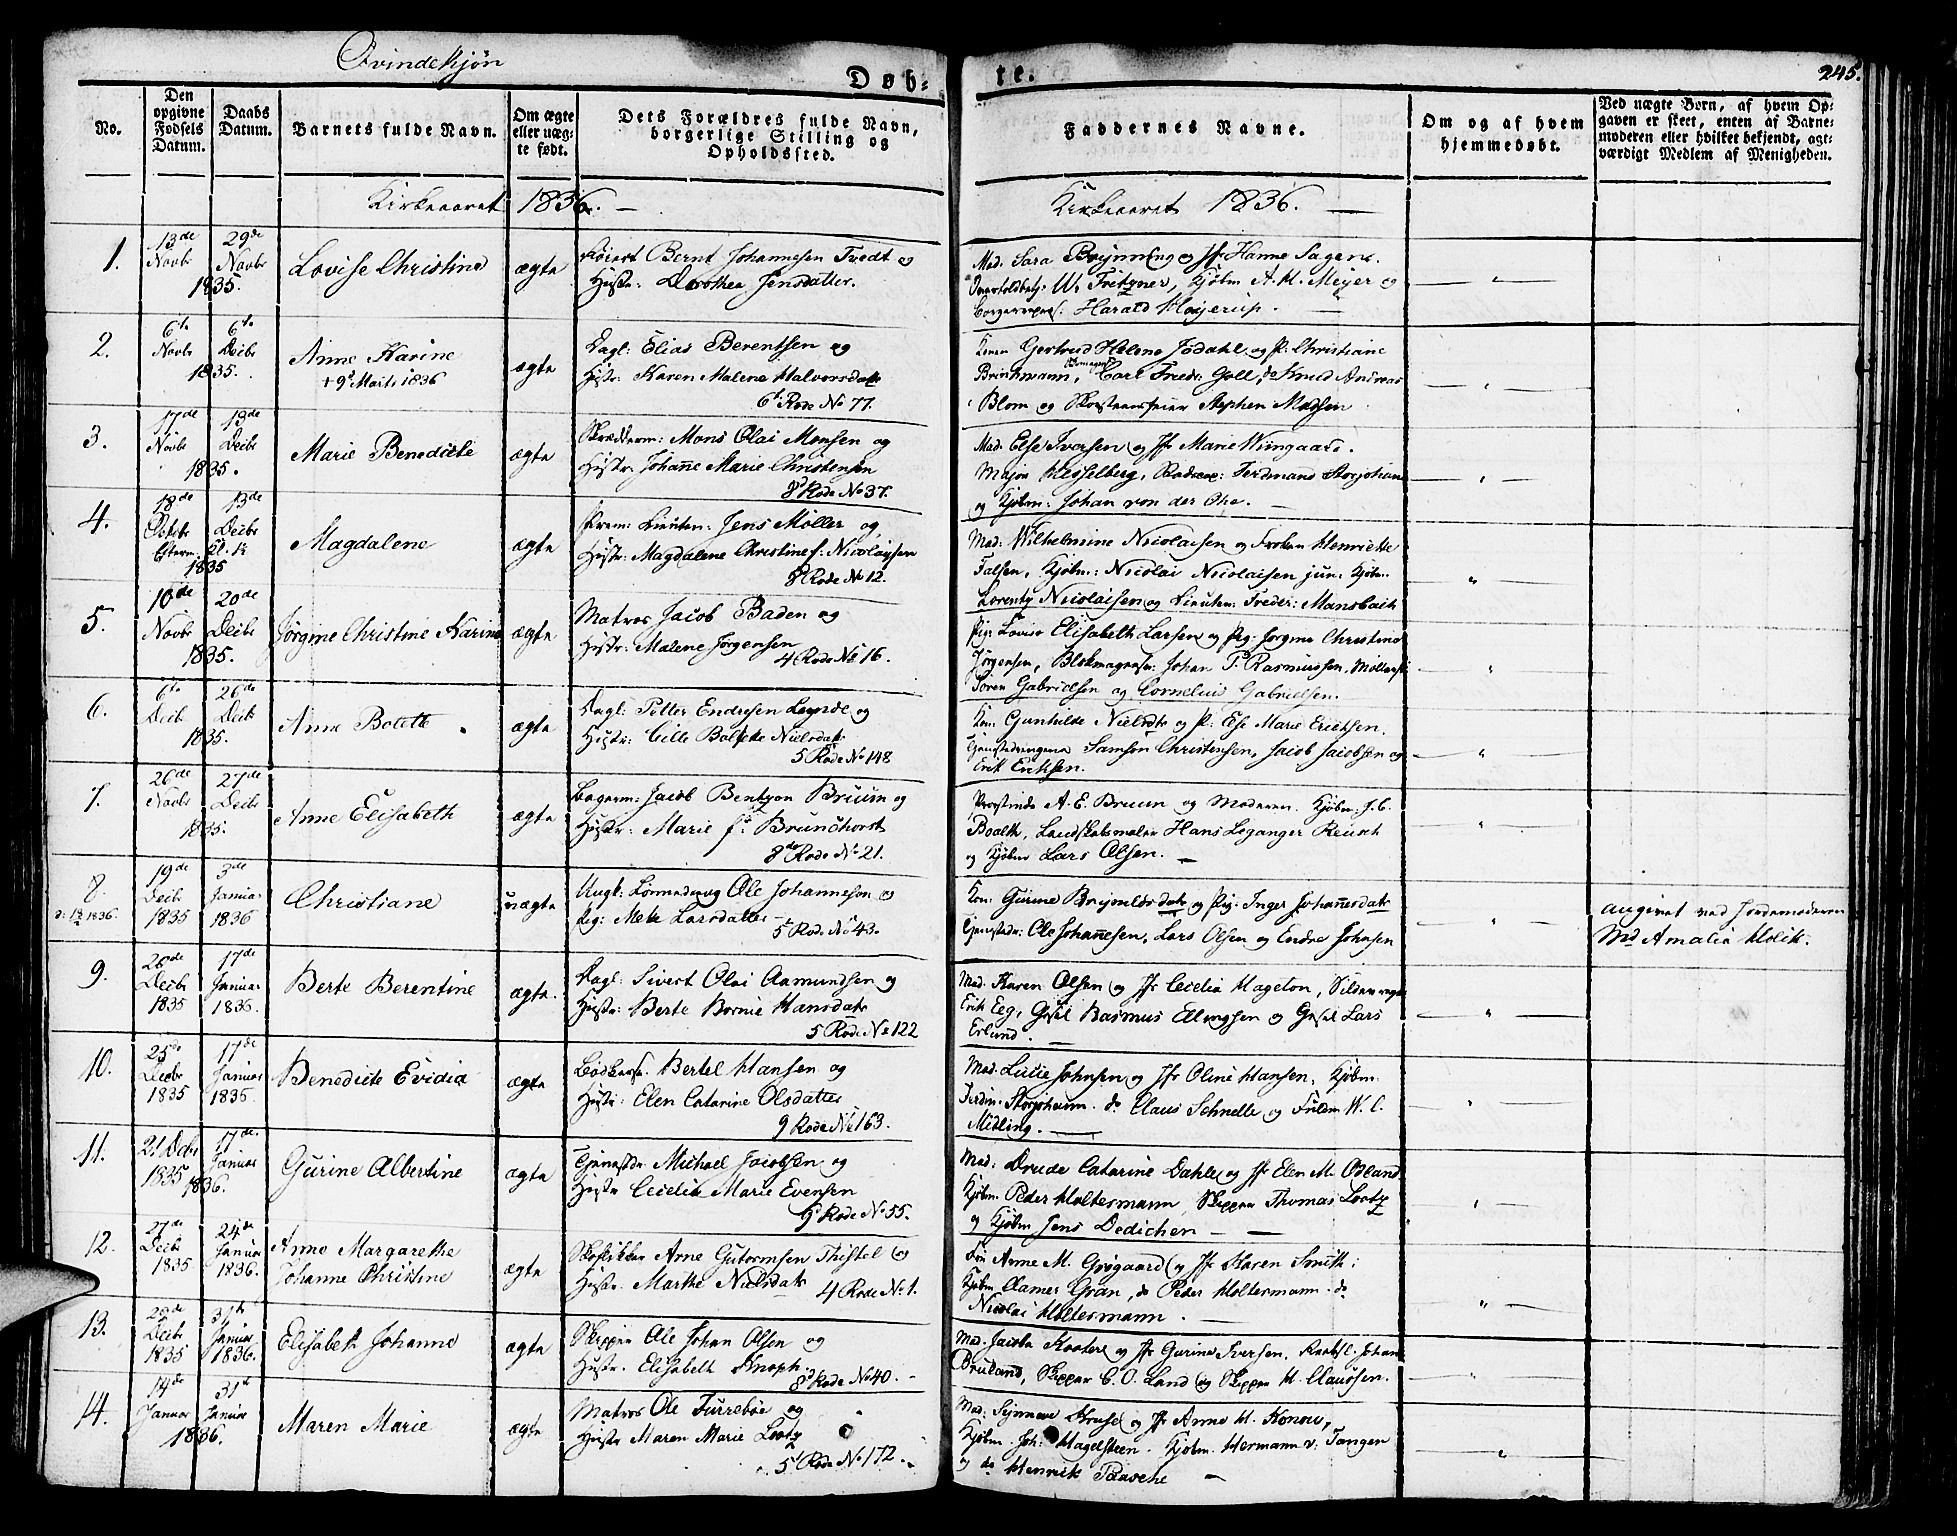 Qvindekjøn
Døb-
te.
245.
No.
Den opgivne Fødsels Datum.
Daabs Datum.
Barnets fulde Navn.
Om ægte eller uægte født.
Dets Forældres fulde Navn, borgerlige Stilling og Opholdssted.
Faddernes Navne.
Om og af hvem hjemmedøbt.
Ved uægte Børn, af hvem Opgaven er skeet, enten af Barnemoderen eller hvilket bekjendt, agtværdigt Medlem af Menigheden.
Kirkeaaret 1836. —
Kirkeaaret 1836. —
1.
13de Novbr 29de Novbr
1835.
Lovise Christine
ægte
Bernt Johannesen Tvedt og
Hustr: Dorothea Jensdatter.
Mad. Sara Brynning og Jfr Hanne Sagen.
W. Fritzner, Kjøbm A. H. Meyer og
Harald Mojerup.
2.
6te Novbr 6te Decbr
1835.
Anne Karine
+ 9d Marts 1836
ægte
Dagl: Elias Berentsen og
Hustr: Karen Malene Halvorsdatr
6te Rode No 77.
Konen Gertrud Helene Jødahl og P: Christiane
Brinkmann, Carl Fredr: Goll, do Knud Andreas
Blom og Skorsteensfeier Stephen Madsen
3.
17de Novbr 13de Decbr
1835.
Marie Benedicte
ægte
Skrædderm: Mons Olai Monsen og
Hustr: Johanne Marie Christensen
8d Rode No 37.
Mad. Else Iversen og Jfr Marie Wiingaard.
Major Hesselberg, Ferdinand Storjohann
og Kjøbm: Johan von der Ohe.
4.
18de Octobr 13de Decbr
1835
Magdalene
ægte
Prem: Lieuten: Jens Møller og
Hustr: Magdalene Christine f: Nicolaysen
8d Rode No 12.
Mad: Wilhelmine Nicolaisen og Frøken Henriette
Falsen, Kjøbm: Nicolai Nicolaisen jun: Kjøbm.
Lorentz Nicolaisen og Lieutn: Freder: Mansbach
5.
10de Novbr 20de Decbr
1835.
Jørgine Christine Karine
ægte
Matros Jacob Baden og
Hustr: Malene Jørgensen
4 Rode No 16.
Pig: Lovise Elisabeth Larsen og Pig: Jørgine Christine
Jørgensen, Johan P. Rasmussen,
Søren Gabrielsen og Cornelius Gabrielsen.
6.
6te Decbr 26de Decbr
1835.
Anne Bolette
ægte
Dagl: Petter Endresen og
Hustr: Cille Bolette Nielsdatr
5 Rode No 148
Kon: Gunhilde Nielsdtr og P: Else Marie Erichsen.
Samson Christensen, Jacob Jacobsen og
Erik Eriksen.
7.
26de Novbr 27de Decbr
1835.
Anne Elisabeth
ægte
Bagerm: Jacob Bentzon Bruun og
Hustr: Marie f. Brunchorst
8de Rode No 21.
Provstinde A. E. Bruun og Moderen. Kjøbm: J. C.
Boalth, Landskabsmaler Hans Leganger Reusch
og Kjøbm Lars Olsen. —
8.
19de Decbr 1835
3de Januar 1836
Christiane
uægte
Ungk: Ole Johannesen og
Pig: Mette Larsdatter —
5 Rode No 43.
Kon: Gurine Brynildsdatr og Pig: Inger Johannesdatr
Ole Johannesen, Lars Olsen og Endre Johnsen
angivet ved Jordemoderen
Md Amalia Holck.
9.
26de Decbr 1835
17de Januar 1836.
Berte Berentine
ægte.
Dagl: Sivert Olai Aamundsen og
Hustr: Berte Hansdatr
5 Rode No 122
Mad. Karen Olsen og Jfr Cecilia Hageton,
Erik Eeg, Gesel Rasmus Ellingsen og Gesel Lars
Erlund. —
10.
25de Decbr 1835
17de Januar 1836.
Benedicte Evidia
ægte
Bertel Hansen og
Hustr: Elen Catarine Olsdatter
9 Rode No 163.
Mad. Lucie Johnsen og Jfr Oline Hansen, Kjøbm.
Ferdin: Storjohann. do Claus Schnelle og Fuldm W. C.
Midling. —
11.
21 Decbr 1835
17de Januar 1836.
Gurine Albertine
ægte
Michael Jacobsen og
Hustr Cecilia Marie Evensen
Rode No 55.
Mad: Drude Catarine Dahl og Jfr Elen M. Odland
Kjøbm: Peder Holtermann, Skipper Thomas Lootz
og Kjøbm Jens Dedichen —
12.
27de Decbr 1835
24de Januar 1836.
Anne Margarethe
Johanne Christine
ægte
Arne Gutormsen Thistel og
Hustr: Marthe Nielsdatr
4 Rode No 1.
Anne M. Grøgaard og Jfr Karen Smith:
Kjøbm Aamer Gran, do Peder Holtermann do
Nicolai Holtermann. —
13.
29de Decbr 1835
31te Januar 1836.
Elisabeth Johanne
ægte
Skipper Ole Johan Olsen og
Hustr. Elisabeth Knoph.
8d Rode No 40. -
Mad. Jacoba Kooter og Jfr Gurine Iversen. Johan
Bruland, Skipper C. O. Lund og Skipper H. Claussen.
14.
14de Januar 31te Januar
1836.
Maren Marie
ægte
Matros Ole Turrebøe og
Hustr Maren Marie Lootz
5 Rode No 172.
Mad: Kruse og Jfr Anne H. Konow,
Kjøbm. Joh: Hagelsteen. Kjøbm. Hermann v: Tangen
og do Henrik Paasche —